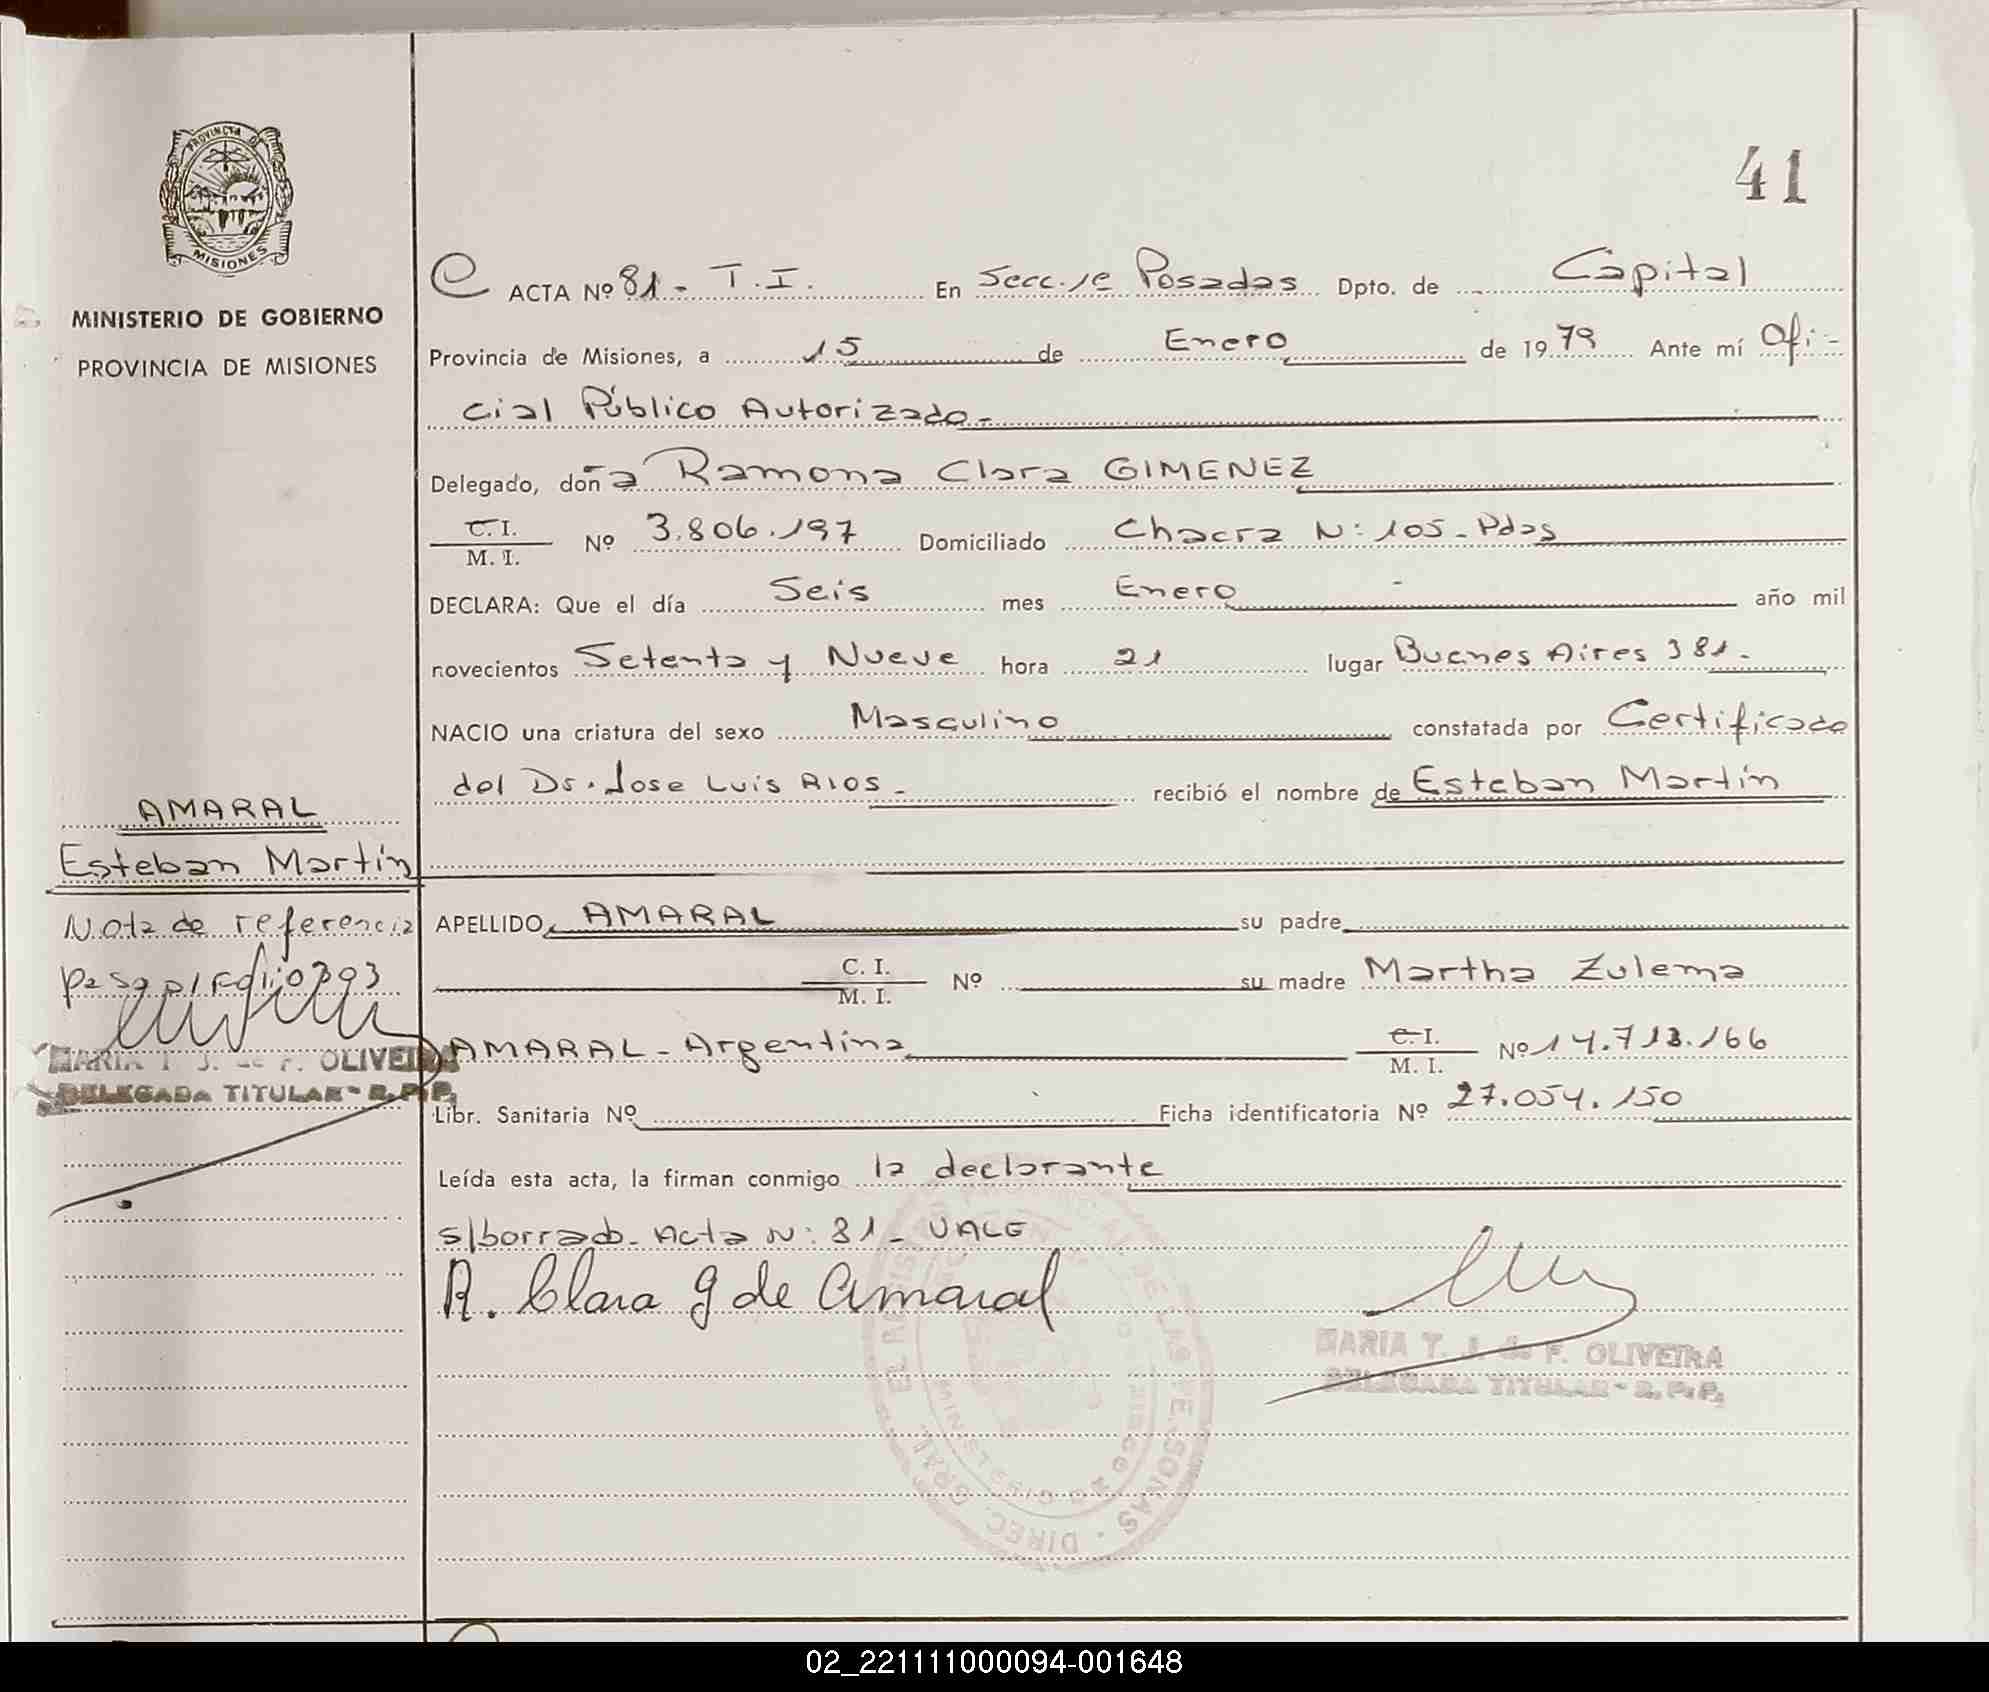 41
PROVINCIA DE
MISIONES
MINISTERIO DE GOBIERNO
PROVINCIA DE MISIONES
ACTA Nº 81 - T.I. En Secc. 1e Posadas Dpto. de Capital
Provincia de Misiones, a 15 de Enero de 1979 Ante mí Ofi-
cial Público Autorizado.-
Delegado, doña Ramona Clara GIMENEZ
C.I.
M. I. Nº 3.806.197 Domiciliado Chacra N: 105 - Pdas
DECLARA: Que el día Seis mes Enero año mil
novecientos Setenta y Nueve hora 21 lugar Buenos Aires 381.-
NACIO una criatura del sexo Masculino constatada por Certificado
del Dr. Jose Luis RIOS.- recibió el nombre de Esteban Martín
AMARAL
Esteban Martín
Nota de referencia
pasa p/ Folio 393
MARIA T. J. de F. OLIVEIRA
DELEGADA TITULAR - R. P. P.
APELLIDO, AMARAL su padre
C. I.
M. I. Nº su madre Martha Zulema
AMARAL - Argentina C.I.
M. I. Nº 14.713.166
Libr. Sanitaria Nº Ficha identificatoria Nº 27.054.150
Leída esta acta, la firman conmigo la declarante
s/borrado. Acta N: 81 - VALE
R. Clara G de Amaral
MARIA T. J. de F. OLIVEIRA
DELEGADA TITULAR - R. P. P.
02_221111000094-001648